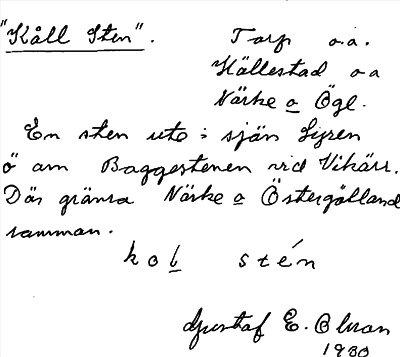 "Kåll Sten". Tarp o.a.
Hällestad o a
Närke o Ögl.
En sten ute i sjön
ö om Baggestenen vid
Där gränsa Närke o Östergötland
samman.
kol stén
Gustaf E. Olsson
1930